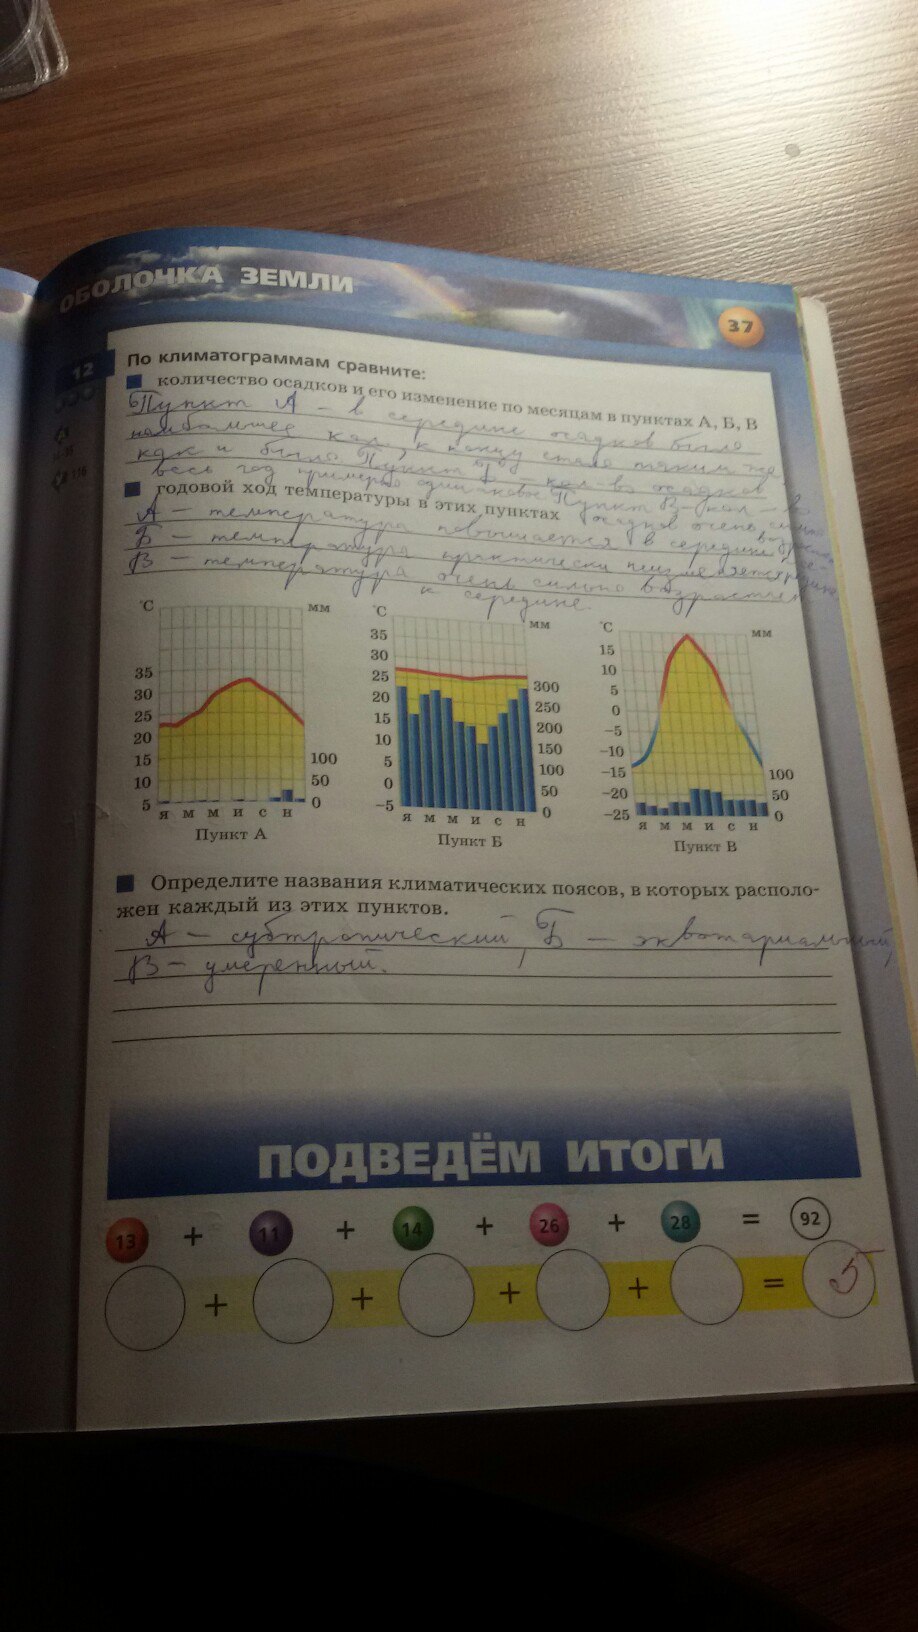 ОБОЛОЧКА ЗЕМЛИ
37
12
По климатограммам сравните:
количество осадков и его изменение по месяцам в пунктах А, Б, В
Пункт А – в середине осадков было
наибольшее кол, к концу стало таким же
как и было. Пункт Б кол-во осадков
весь год примерно одинаковое Пункт В – кол – в
годовой ход температуры в этих пунктах осадков очень сильно
А – температура повышается в середине
Б – температура практически неизменяется
В – температура очень сильно возрастает
к середине.
°С мм °С мм °С мм
35 30 25 20 15 10 5
100 50 0
я м м и с н
Пункт А
35 30 25 20 15 10 5 0 –5
300 250 200 150 100 50 0
я м м и с н
Пункт Б
15 10 5 0 –5 –10 –15 –20 –25
100 50 0
я м м и с н
Пункт В
Определите названия климатических поясов, в которых располо-
жен каждый из этих пунктов.
А – субтропический, Б – экваториальный,
В – умеренный.
ПОДВЕДЁМ ИТОГИ
13 + 11 + 14 + 26 + 28 = 92
+ + + + = 5